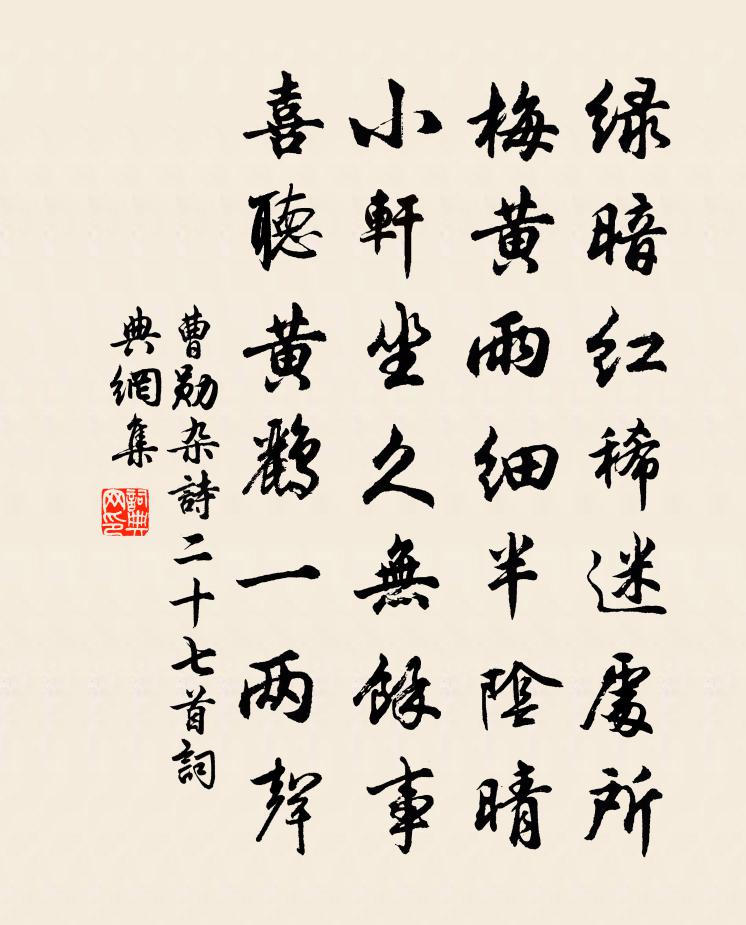 绿暗红稀迷處所
梅黄雨细半陰晴
小軒坐久無餘事
喜聽黄鸝一两聲
曹勋杂詩二十七首詞
典網集
詞典网印